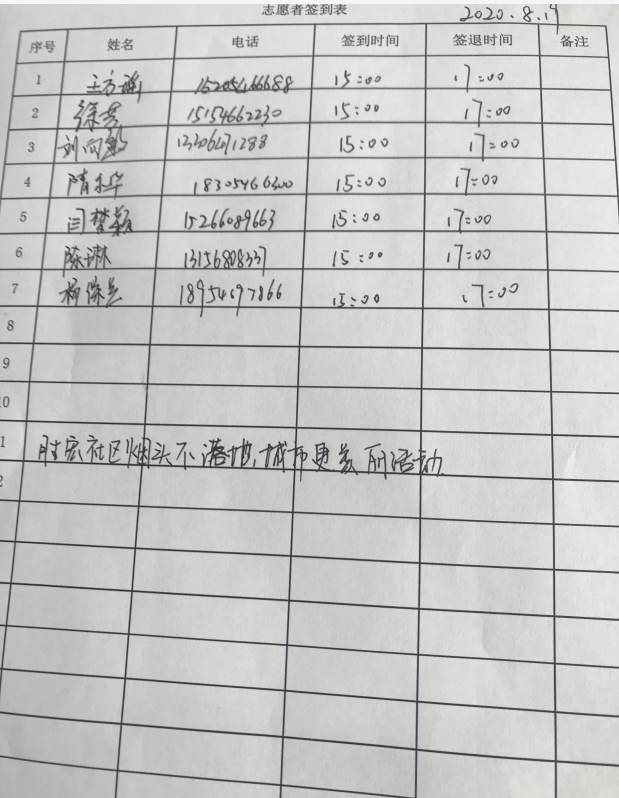 志愿者签到表
2020.8.19
序号 姓名 电话 签到时间 签退时间 备注
1 王方 15:00 17:00
2 徐芸 15154662230 15:00 17:00
3 刘向 15:00 17:00
4 隋 华 18305466300 15:00 17:00
5 闫楚颖 15266089663 15:00 17:00
6 陈琳 13156808337 15:00 17:00
7 杨保兰 18954697866 15:00 17:00
8
9
0
1 胜宏社区烟头不落地,城市更美丽活动
2